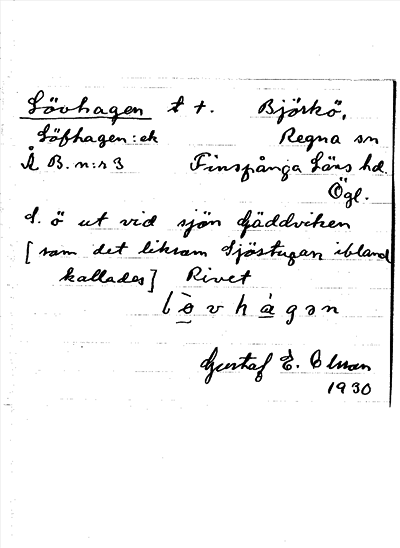 Lövhagen t t. Björkö,
Löfhagen: ek Regna sn
Å B. n:r 3 Finspånga Läns hd.
Ögl.
L. ö ut vid sjön Gäddviken
[som det liksom Sjöstugan ibland
kallades] Rivet
lövhagen
Gustaf E. Olsson
1930